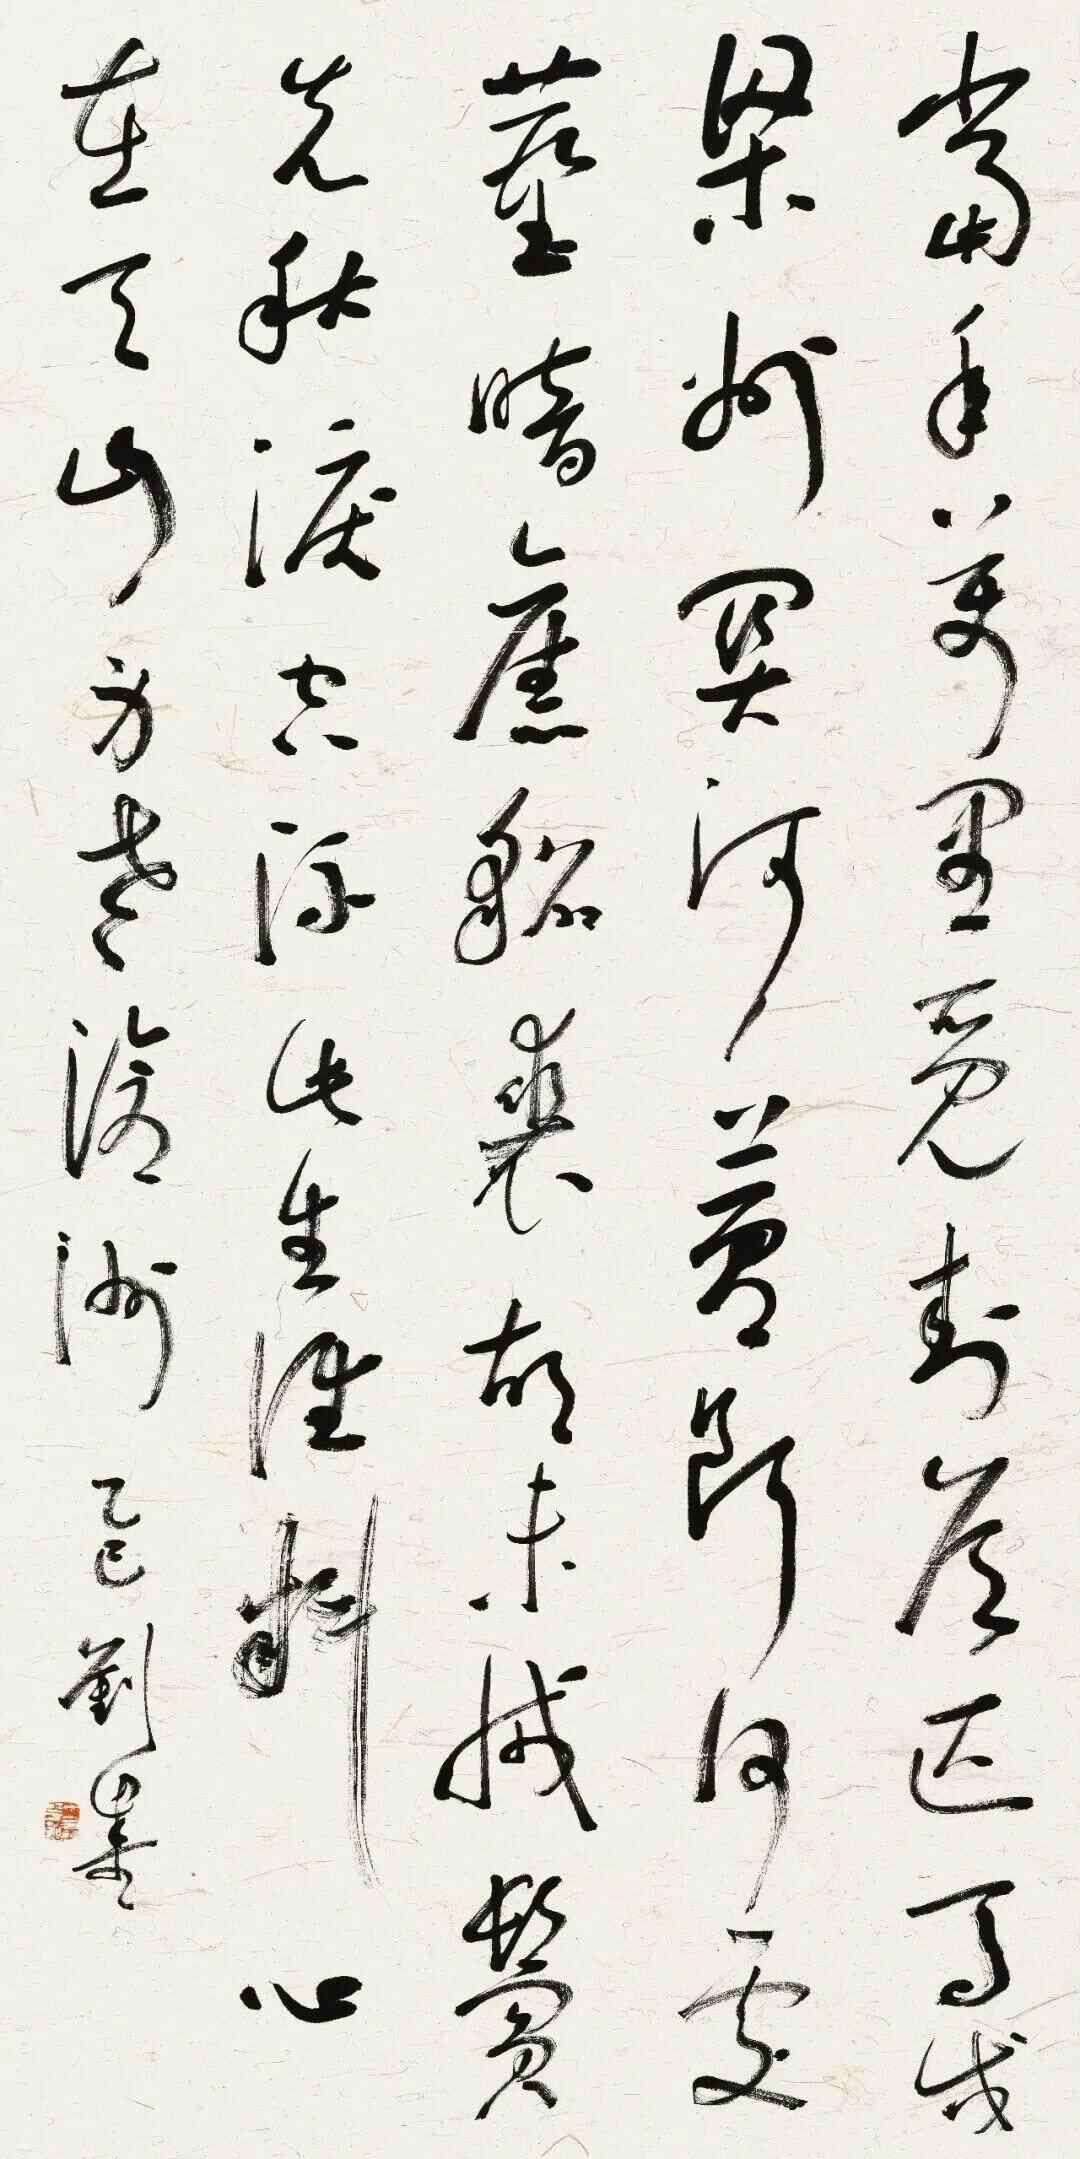 當年萬里覓封侯匹馬戍
梁州關河夢斷何處
塵暗舊貂裘胡未滅鬢
先秋淚空流此生誰料心
在天山身老滄洲乙巳劉